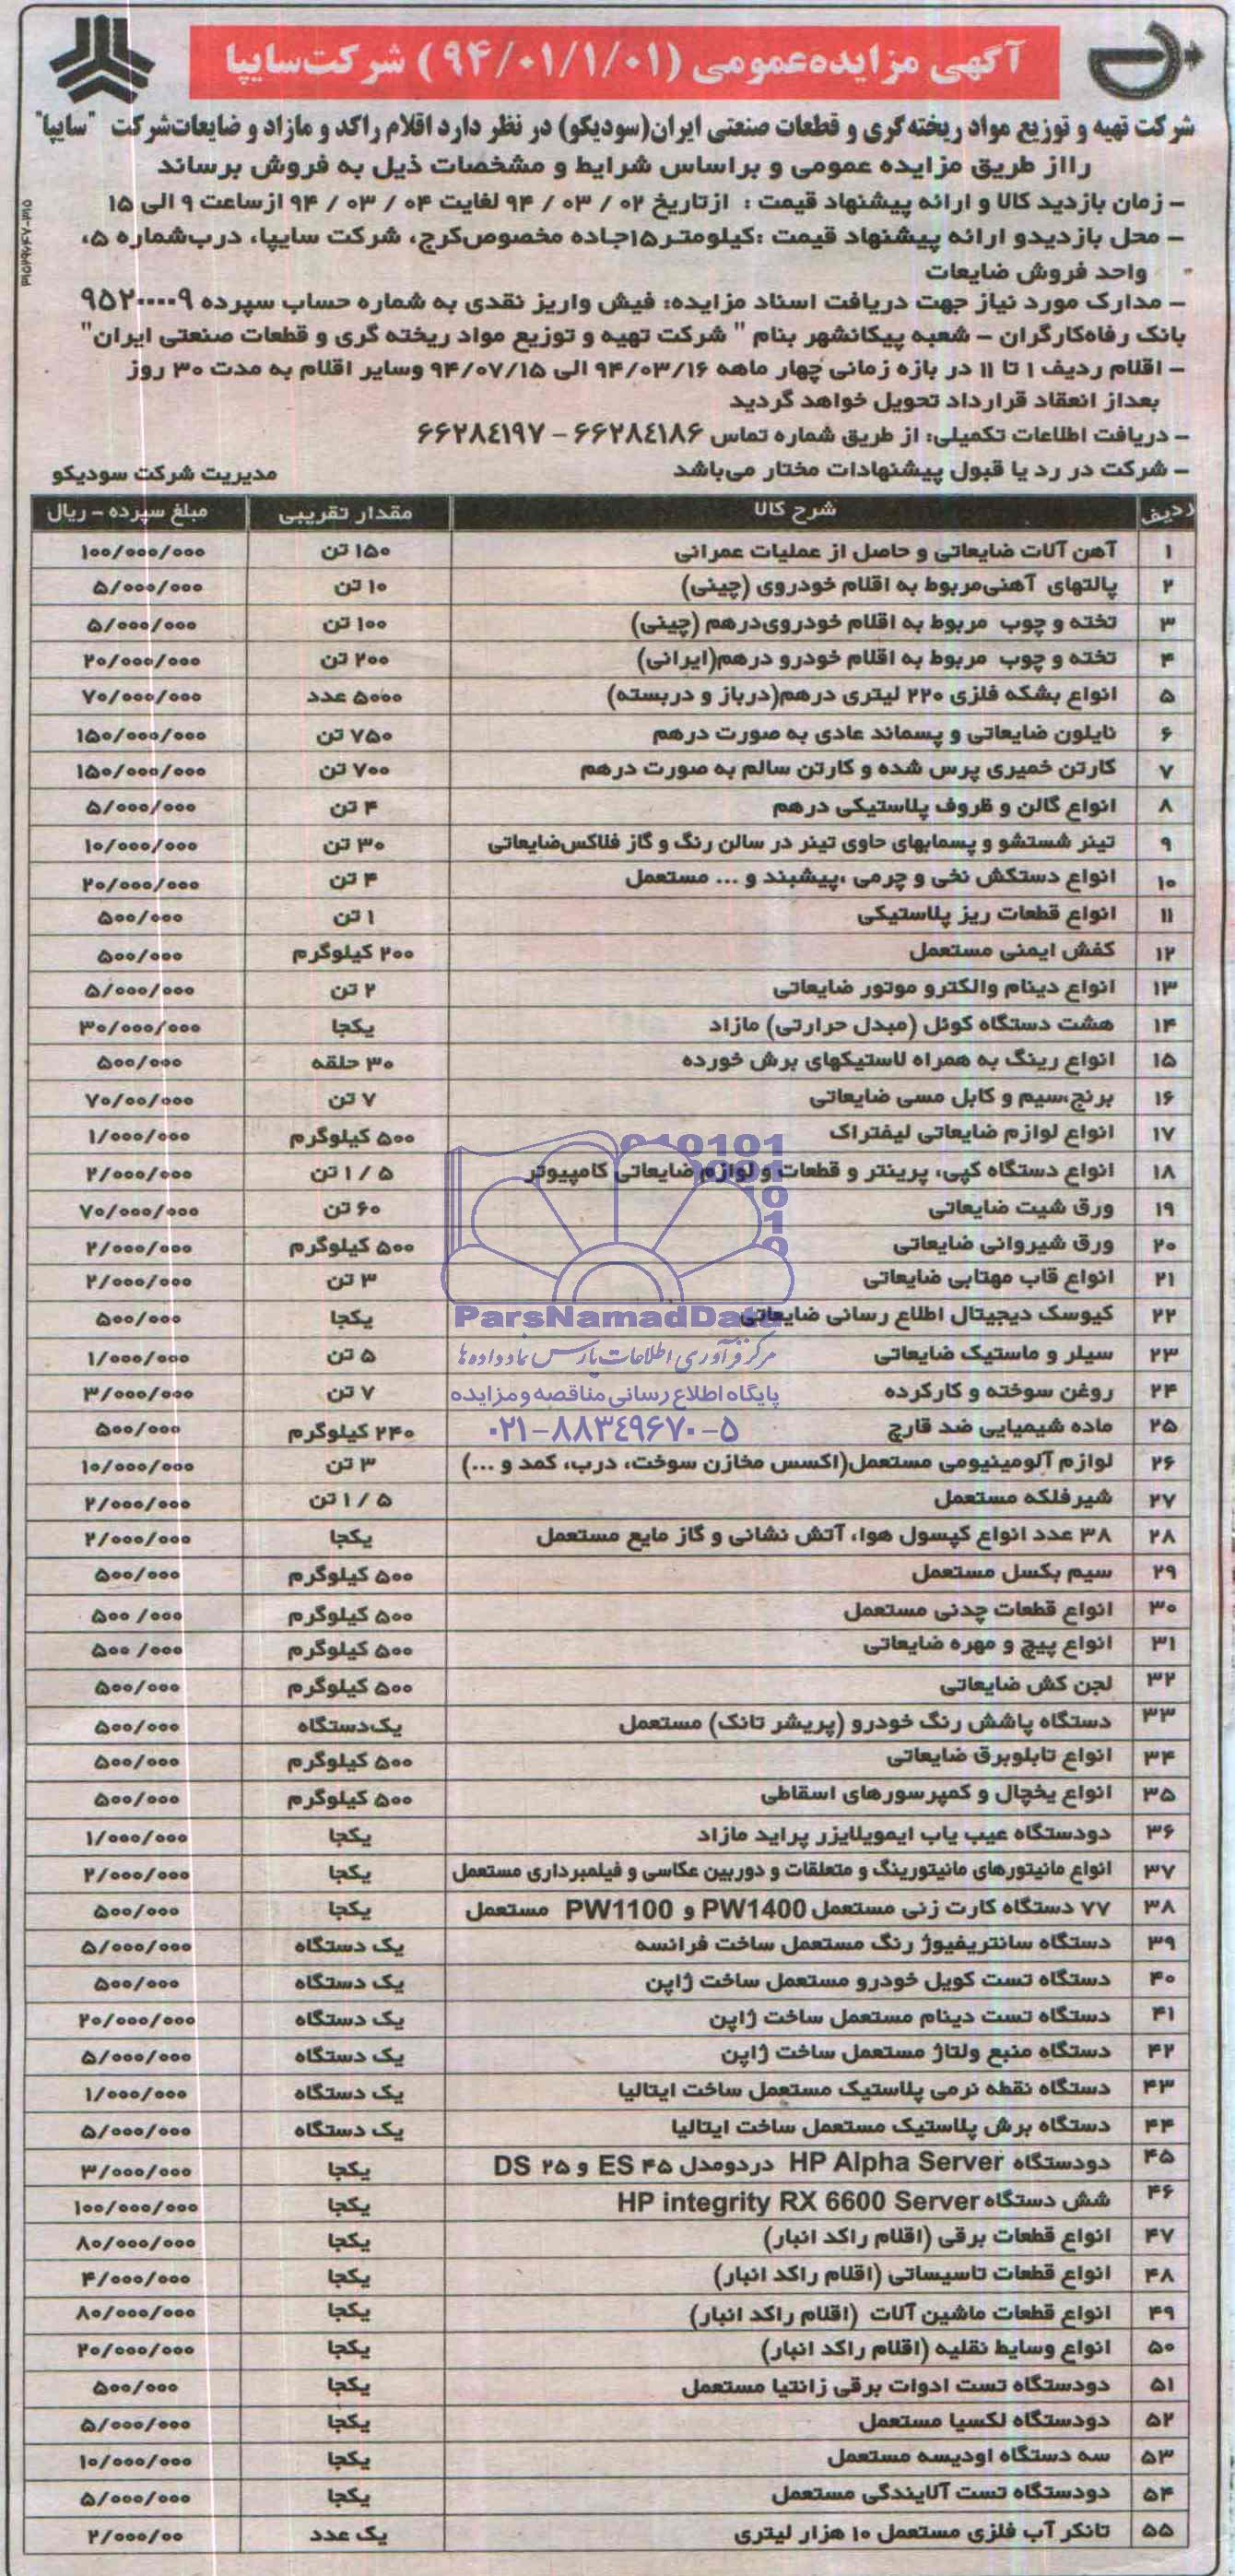 آگهی مزایده عمومی (۹۴/۰۱/۱/۰۱) شرکت سایپا
شرکت تهیه و توزیع مواد ریخته گری و قطعات صنعتی ایران(سودیکو) در نظر دارد اقلام راکد و مازاد و ضایعات شرکت "سایپا"
رااز طریق مزایده عمومی و براساس شرایط و مشخصات ذیل به فروش برساند
– زمان بازدید کالا و ارائه پیشنهاد قیمت : ازتاریخ ۰۲ / ۰۳ / ۹۴ لغایت ۰۴ / ۰۳ / ۹۴ ازساعت ۹ الی ۱۵
– محل بازدیدو ارائه پیشنهاد قیمت :کیلومتر۱۵جاده مخصوص کرج، شرکت سایپا، درب شماره ۵،
واحد فروش ضایعات
– مدارک مورد نیاز جهت دریافت اسناد مزایده: فیش واریز نقدی به شماره حساب سپرده ۹۵۲۰۰۰۰۹
بانک رفاه کارگران – شعبه پیکانشهر بنام " شرکت تهیه و توزیع مواد ریخته گری و قطعات صنعتی ایران"
– اقلام ردیف ۱ تا ۱۱ در بازه زمانی چهار ماهه ۹۴/۰۳/۱۶ الی ۹۴/۰۷/۱۵ وسایر اقلام به مدت ۳۰ روز
بعداز انعقاد قرارداد تحویل خواهد گردید
– دریافت اطلاعات تکمیلی: از طریق شماره تماس ۶۶۲۸۴۱۸۶ – ۶۶۲۸۴۱۹۷
– شرکت در رد یا قبول پیشنهادات مختار می‌باشد
مدیریت شرکت سودیکو
ردیف شرح کالا مقدار تقریبی مبلغ سپرده – ریال
۱ آهن آلات ضایعاتی و حاصل از عملیات عمرانی ۱۵۰ تن ۱۰۰/۰۰۰/۰۰۰
۲ پالتهای آهنی مربوط به اقلام خودروی (چینی) ۱۰ تن ۵/۰۰۰/۰۰۰
۳ تخته و چوب مربوط به اقلام خودروی درهم (چینی) ۱۰۰ تن ۵/۰۰۰/۰۰۰
۴ تخته و چوب مربوط به اقلام خودرو درهم(ایرانی) ۲۰۰ تن ۲۰/۰۰۰/۰۰۰
۵ انواع بشکه فلزی ۲۲۰ لیتری درهم(درباز و دربسته) ۵۰۰۰ عدد ۷۰/۰۰۰/۰۰۰
۶ نایلون ضایعاتی و پسماند عادی به صورت درهم ۷۵۰ تن ۱۵۰/۰۰۰/۰۰۰
۷ کارتن خمیری پرس شده و کارتن سالم به صورت درهم ۷۰۰ تن ۱۵۰/۰۰۰/۰۰۰
۸ انواع گالن و ظروف پلاستیکی درهم ۴ تن ۵/۰۰۰/۰۰۰
۹ تینر شستشو و پسمابهای حاوی تینر در سالن رنگ و گاز فلاکس ضایعاتی ۳۰ تن ۱۰/۰۰۰/۰۰۰
۱۰ انواع دستکش نخی و چرمی ،پیشبند و ... مستعمل ۴ تن ۲۰/۰۰۰/۰۰۰
۱۱ انواع قطعات ریز پلاستیکی ۱ تن ۵۰۰/۰۰۰
۱۲ کفش ایمنی مستعمل ۲۰۰ کیلوگرم ۵۰۰/۰۰۰
۱۳ انواع دینام والکترو موتور ضایعاتی ۲ تن ۵/۰۰۰/۰۰۰
۱۴ هشت دستگاه کوئل (مبدل حرارتی) مازاد یکجا ۳۰/۰۰۰/۰۰۰
۱۵ انواع رینگ به همراه لاستیکهای برش خورده ۳۰ حلقه ۵۰۰/۰۰۰
۱۶ برنج،سیم و کابل مسی ضایعاتی ۷ تن ۷۰/۰۰/۰۰۰
۱۷ انواع لوازم ضایعاتی لیفتراک ۵۰۰ کیلوگرم ۱/۰۰۰/۰۰۰
۱۸ انواع دستگاه کپی، پرینتر و قطعات و لوازم ضایعاتی کامپیوتر ۵ / ۱ تن ۲/۰۰۰/۰۰۰
۱۹ ورق شیت ضایعاتی ۶۰ تن ۷۰/۰۰۰/۰۰۰
۲۰ ورق شیروانی ضایعاتی ۵۰۰ کیلوگرم ۲/۰۰۰/۰۰۰
۲۱ انواع قاب مهتابی ضایعاتی ۳ تن ۲/۰۰۰/۰۰۰
۲۲ کیوسک دیجیتال اطلاع رسانی ضایعاتی یکجا ۵۰۰/۰۰۰
۲۳ سیلر و ماستیک ضایعاتی ۵ تن ۱/۰۰۰/۰۰۰
۲۴ روغن سوخته و کارکرده ۷ تن ۳/۰۰۰/۰۰۰
۲۵ ماده شیمیایی ضد قارچ ۲۴۰ کیلوگرم ۵۰۰/۰۰۰
۲۶ لوازم آلومینیومی مستعمل(اکسس مخازن سوخت، درب، کمد و ...) ۳ تن ۱۰/۰۰۰/۰۰۰
۲۷ شیرفلکه مستعمل ۵ / ۱ تن ۲/۰۰۰/۰۰۰
۲۸ ۳۸ عدد انواع کپسول هوا، آتش نشانی و گاز مایع مستعمل یکجا ۲/۰۰۰/۰۰۰
۲۹ سیم بکسل مستعمل ۵۰۰ کیلوگرم ۵۰۰/۰۰۰
۳۰ انواع قطعات چدنی مستعمل ۵۰۰ کیلوگرم ۵۰۰/۰۰۰
۳۱ انواع پیچ و مهره ضایعاتی ۵۰۰ کیلوگرم ۵۰۰/۰۰۰
۳۲ لجن کش ضایعاتی ۵۰۰ کیلوگرم ۵۰۰/۰۰۰
۳۳ دستگاه پاشش رنگ خودرو (پریشر تانک) مستعمل یک‌دستگاه ۵۰۰/۰۰۰
۳۴ انواع تابلوبرق ضایعاتی ۵۰۰ کیلوگرم ۵۰۰/۰۰۰
۳۵ انواع یخچال و کمپرسورهای اسقاطی ۵۰۰ کیلوگرم ۵۰۰/۰۰۰
۳۶ دودستگاه عیب یاب ایموبلایزر پراید مازاد یکجا ۱/۰۰۰/۰۰۰
۳۷ انواع مانیتورهای مانیتورینگ و متعلقات و دوربین عکاسی و فیلمبرداری مستعمل یکجا ۲/۰۰۰/۰۰۰
۳۸ ۷۷ دستگاه کارت زنی مستعمل PW1400 و PW1100 مستعمل یکجا ۵۰۰/۰۰۰
۳۹ دستگاه سانتریفیوژ رنگ مستعمل ساخت فرانسه یک دستگاه ۵/۰۰۰/۰۰۰
۴۰ دستگاه تست کویل خودرو مستعمل ساخت ژاپن یک دستگاه ۵۰۰/۰۰۰
۴۱ دستگاه تست دینام مستعمل ساخت ژاپن یک دستگاه ۲۰/۰۰۰/۰۰۰
۴۲ دستگاه منبع ولتاژ مستعمل ساخت ژاپن یک دستگاه ۵/۰۰۰/۰۰۰
۴۳ دستگاه نقطه نرمی پلاستیک مستعمل ساخت ایتالیا یک دستگاه ۱/۰۰۰/۰۰۰
۴۴ دستگاه برش پلاستیک مستعمل ساخت ایتالیا یک دستگاه ۵/۰۰۰/۰۰۰
۴۵ دودستگاه HP Alpha Server دردومدل ES ۴۵ و DS ۲۵ یکجا ۳/۰۰۰/۰۰۰
۴۶ شش دستگاه HP integrity RX 6600 Server یکجا ۱۰۰/۰۰۰/۰۰۰
۴۷ انواع قطعات برقی (اقلام راکد انبار) یکجا ۸۰/۰۰۰/۰۰۰
۴۸ انواع قطعات تاسیساتی (اقلام راکد انبار) یکجا ۴/۰۰۰/۰۰۰
۴۹ انواع قطعات ماشین آلات (اقلام راکد انبار) یکجا ۸۰/۰۰۰/۰۰۰
۵۰ انواع وسایط نقلیه (اقلام راکد انبار) یکجا ۲۰/۰۰۰/۰۰۰
۵۱ دودستگاه تست ادوات برقی زانتیا مستعمل یکجا ۵۰۰/۰۰۰
۵۲ دودستگاه لکسیا مستعمل یکجا ۵/۰۰۰/۰۰۰
۵۳ سه دستگاه اودیسه مستعمل یکجا ۱۰/۰۰۰/۰۰۰
۵۴ دودستگاه تست آلایندگی مستعمل یکجا ۵/۰۰۰/۰۰۰
۵۵ تانکر آب فلزی مستعمل ۱۰ هزار لیتری یک عدد ۲/۰۰۰/۰۰
ParsNamadData
مرکز فرآوری اطلاعات پارس نماد داده ها
پایگاه اطلاع رسانی مناقصه و مزایده
۰۲۱–۸۸۳۴۹۶۷۰–۵